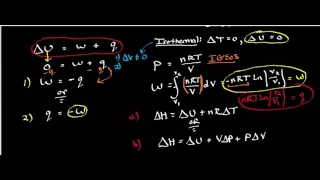 ΔU = w + q
0 = w + q
1) w = -q
or
2) q = -w
1) ΔV ≠ 0
2)
Isothermal: ΔT = 0, ΔU = 0
P = nRT/V IGEOS
W = ∫_{V₁}^{V₂} (nRT/V) dV = -nRT ln|V₂/V₁| = w
nRT ln|V₂/V₁| = q
a) ΔH = ΔU + nRΔT
or
b) ΔH = ΔU + VΔP + PΔV